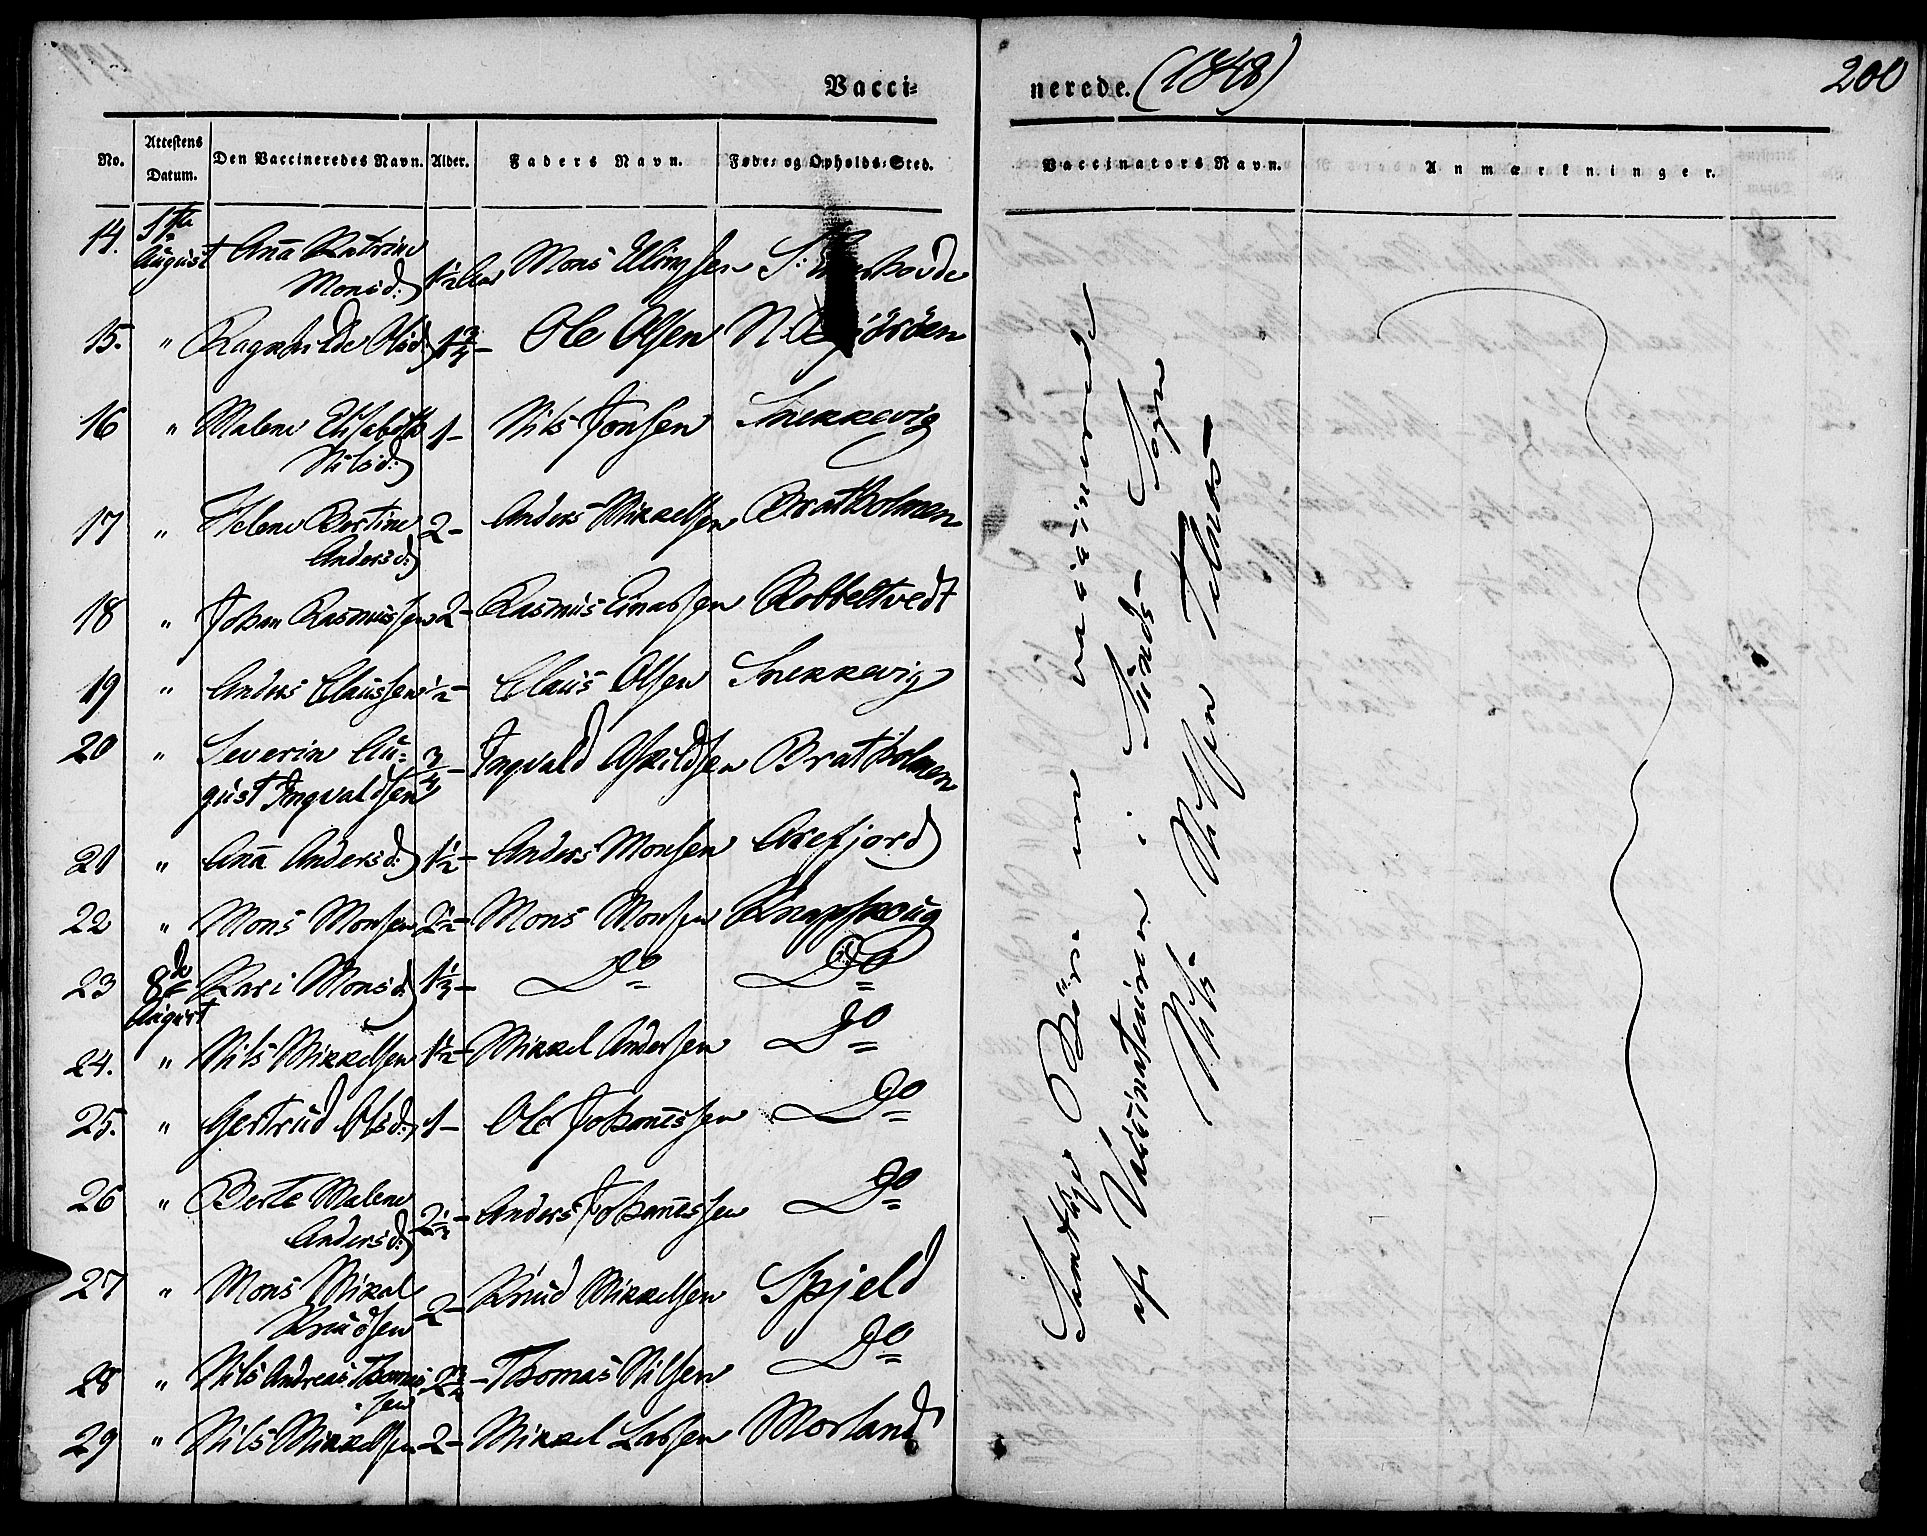 Vacci-
nerede. (1848)
200
No. Attestens Datum. Den Vaccineredes Navn. Alder. Faders Navn. Føde- og Opholds-Sted.
Vaccinators Navn. Anmærkninger.
14. 1ste August Ana Katrine Monsd: 1½ Aar Mons Ellingsen
15. " Ragnhilde Olsd: 1¾ - Ole Olsen
16 " Malene Elisabeth Nilsd: 1 - Nils Jonsen Snekkevig
17 " Helene Bertine Andersd: 2 - Anders Mikkelsen Bratholmen
18 " Johan Rasmussen 2 - Rasmus Einarssen Kobbeltvedt
19 " Anders Claussen ½ - Claus Olsen Snekkevig
20 " Severin Au-
gust Ingvaldsen ¾ - Ingvald Askildsen Bratholmen
21 " Ana Andersd: 1½ - Anders Monsen Arefjord
22 " Mons Monsen 2½ - Mons Monsen Knapskoug
23 8de August Kari Monsd: 1⅓ - Do Do
24. " Nils Mikkelsen 1½ - Mikkel Andersen Do
25. " Gertrud Olsd: 1 - Ole Johanessen Do
26 " Berte Malene Andersd: 2½ - Anders Johanessen Do
27 " Mons Mikal Knudsen 2 - Knud Mikkelsen Spjeld
28 " Nils Andreas Thomassen - Thomas Nilsen Do
29 " Nils Mikkelsen 2 - Mikkel Lassen Morland
Samtlige Börn ere vaccinerede
af Vaccinateuren i Sunds- Sogn
Nils Nilsen Telnæs -